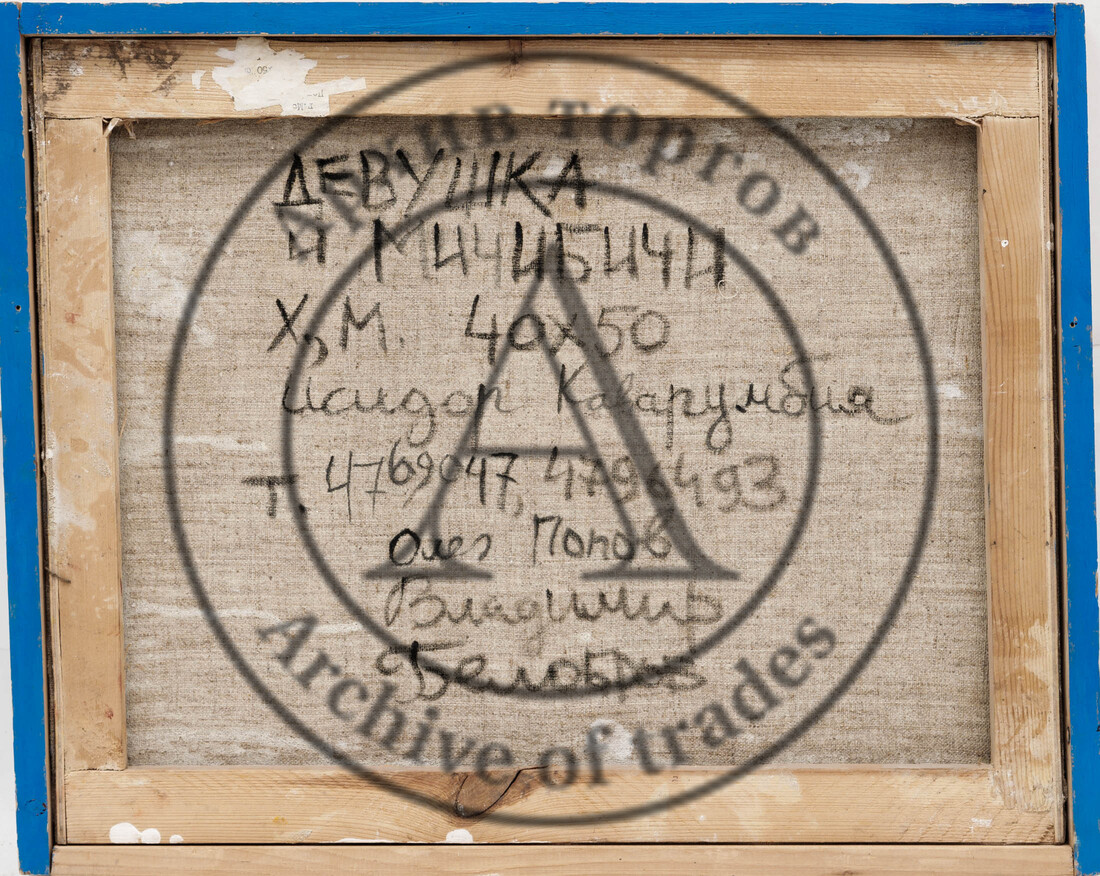 ДЕВУШКА
И МИЧИБИЧИ
Х,М. 40х50
Исидор Каварумбия
т. 4769047, 4796493
Олег Попов
Владимир
Архив торгов
Archive of trades